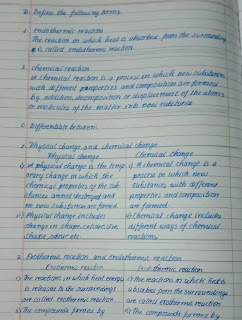 B. Define the following terms.
1. endothermic reaction
The reaction in which heat is absorbed from the surrounding
is called endothermic reaction.
2. chemical reaction
A chemical reaction is a process in which new substances
with different properties and composition are formed
by addition, decomposition or displacement of the atoms
or molecules of the matter into new substance
C. Differentiate between:
1. Physical change and chemical change
Physical change Chemical change
i) A physical change is the temp- i) A chemical change is a
orary change in which the process in which new
chemical properties of the sub- substances with different
stances are not destroyed and properties and composition
no new substances are formed are formed.
ii) Physical change includes ii) Chemical change includes
change in shape, colour, size, different ways of chemical
shape, odour, etc. reactions.
2. Exothermic reaction and endothermic reaction
Exothermic reaction Endothermic reaction
i) The reactions in which heat energy i) The reactions in which heat is
is releases to the surroundings absorbed from the surroundings
are called exothermic reaction are called exothermic reaction
ii) The compounds formed by ii) The compounds formed by